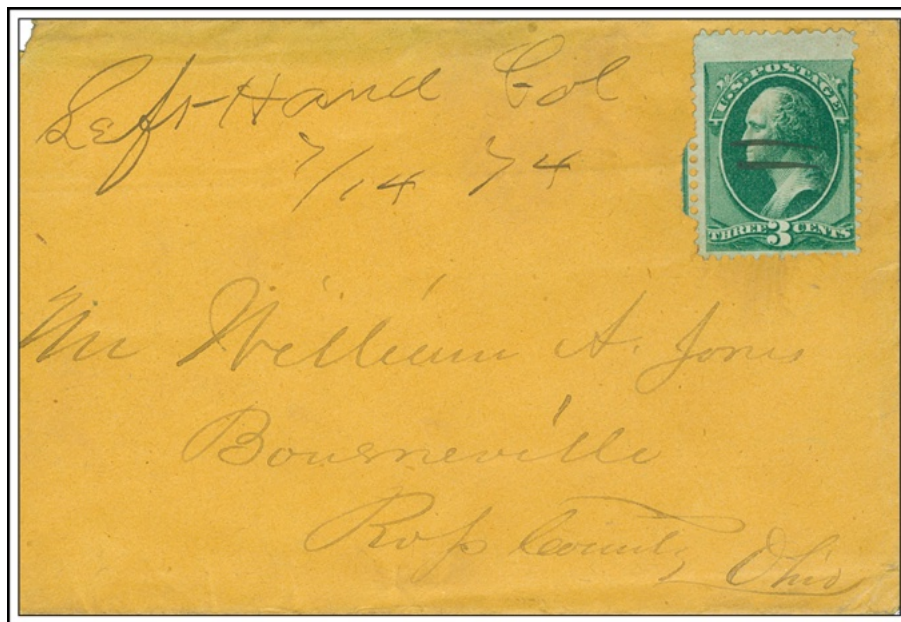 Left Hand Col
7/14 74
U.S. POSTAGE
THREE 3 CENTS
Mr William A. Jones
Bourneville
Ross County, Ohio